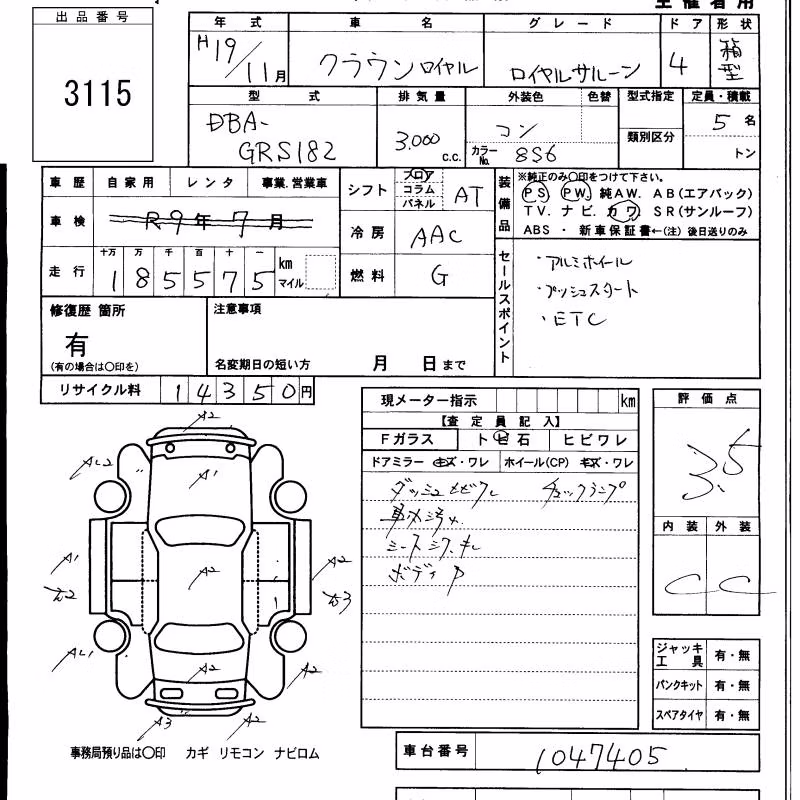 主催者用
出品番号
3115
年式 車名 グレード ドア 形状
H19/11月 クラウンロイヤル ロイヤルサルーン 4 箱型
型式 排気量 外装色 色替 型式指定 定員・積載
DBA-GRS182 3.000 c.c. コン カラーNo. 8S6 類別区分 5名 トン
車歴 自家用 レンタ 事業.営業車
シフト フロア コラム パネル AT
装備品 ※純正のみ○印をつけて下さい。
PS PW. 純AW. AB(エアバック)
TV. ナビ. カワ. SR(サンルーフ)
ABS ・ 新車保証書←(注) 後日送りのみ
車検 R9年7月
冷房 AAC
走行 十万 万 千 百 十 一
185575 km マイル
燃料 G
セールスポイント
・アルミホイール
・プッシュスタート
・ETC
修復歴 箇所
有
(有の場合は○印を)
注意事項
名変期日の短い方 月 日まで
リサイクル料 14350円
現メーター指示 km
【査定員記入】
Fガラス トビ石 ヒビワレ
ドアミラー キズ・ワレ ホイール(CP) キズ・ワレ
ダッシュヒビワレ チェックランプ
シートシワ.キレ
ボディP
評価点
3.5
内装 外装
C C
A2
AL2
A1
A1
A2
A2
A2
AL1
A2
A2
A3
A2
ジャッキ工具 有・無
パンクキット 有・無
スペアタイヤ 有・無
事務局預り品は○印 カギ リモコン ナビロム
車台番号 1047405